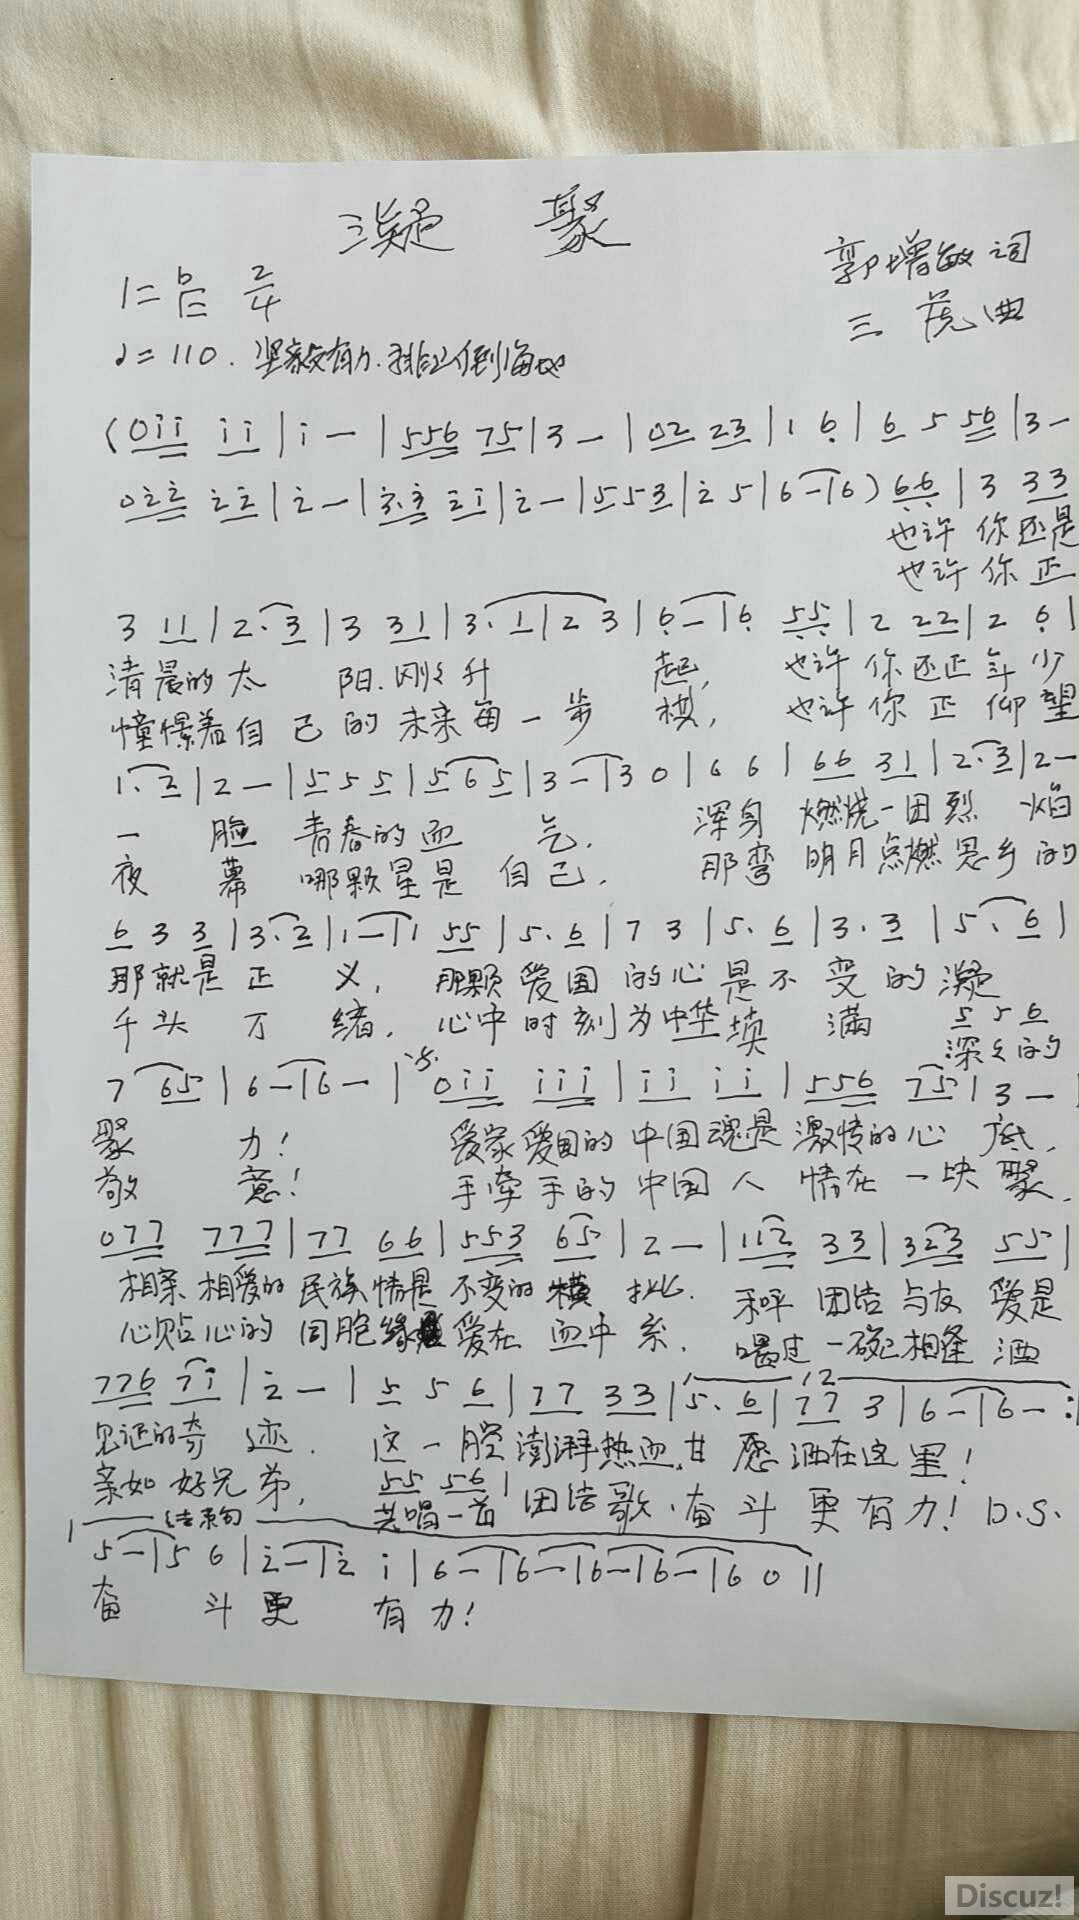 凝 聚
1=ᵇE 2/4
郭增敏词
♩=110. 坚毅有力. 排山倒海地
三虎曲
(0i̇i̇ i̇i̇|i̇ —|556 75|3 —|02 23|1 6̣|6 5 56|3 —
02̇2̇ 2̇2̇|2̇ —|3̇.3̇ 2̇i̇|2̇ —|553|2̇ 5|6 —|6) 6̣6̣|3 33
也许 你还是
也许 你正
3 11|2. 3|3 31|3. 1|2 3|6̣ —|6̣ 5̣5̣|2 22|2 6̣|
清晨的太 阳.刚刚升 起, 也许你还正年少
憧憬着自己的未来每一步 棋, 也许你正仰望
1. 2|2 —|5 5 5|5 6 5|3 —|3 0|6 6|66 31|2. 3|2 —
一 脸 青春的血 气. 浑身 燃烧一团烈 焰
夜 幕 哪颗星是 自己. 那弯 明月点燃思乡的
6 3 3|3. 2|1 —|1 55|5. 6|7 3|5. 6|3. 3|5. 6|
那就是 正 义, 那颗爱国的心是不变的凝
千头 万 绪, 心中时刻为中华填 满
5 5 6
深深的
7 65|6 —|6 —|𝄋 0i̇i̇ i̇i̇i̇|i̇i̇ i̇i̇|556 75|3 —|
聚 力! 爱家爱国的中国魂是激情的心 底,
敬 意! 手牵手的中国人 情在一块聚.
077 777|77 66|553 65|2 —|112 33|323 55|
相亲相爱的民族情是不变的横 批. 和呼团结与友爱是
心贴心的同胞缘 爱在血中系. 喝过一碗相逢 酒
776 7i̇|2̇ —|5 5 6|77 33|1 5. 6|2 77 3|6 —|6 —:|
见证的奇 迹. 这一腔澎湃热血,甘 愿洒在这里!
55 56|
亲如好兄弟, 共唱一首团结歌.奋 斗更有力! D.S.
结束句
5 —|5 6|2̇ —|2̇ i̇|6 —|6 —|6 —|6 —|6 0||
奋 斗更 有力!
Discuz!